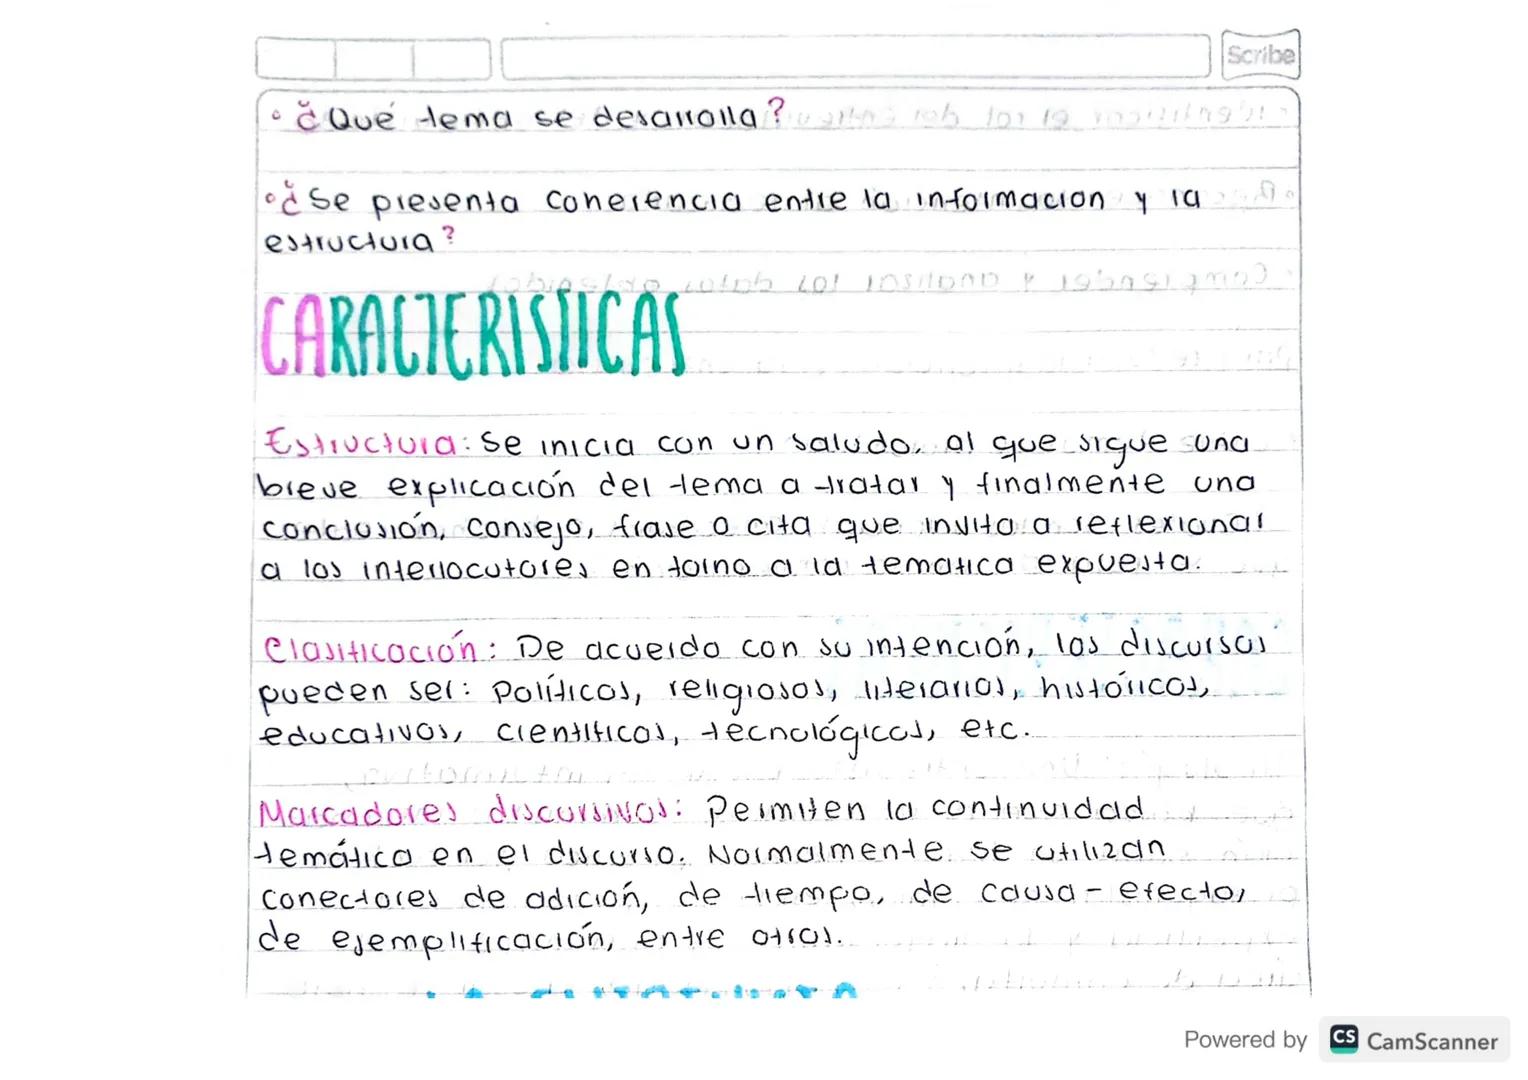 Scribe
• ¿Qué tema se desarrolla?
• ¿Se presenta coherencia entre la informacion y la
estructura?
CARACTERISTICAS
Estructura: Se inicia con un saludo, al que sigue una
breve explicación del tema a tratar y finalmente una
conclusión, consejo, frase o cita que invita a reflexionar
a los interlocutores en torno a la tematica expuesta.
Clasificación: De acuerdo con su intención, los discursos
pueden ser: políticos, religiosos, literarios, históricos,
educativos, cientificos, tecnológicos, etc.
Marcadores discursivos: Permiten la continuidad
temática en el discurso. Normalmente se utilizan
conectores de adición, de tiempo, de causa - efecto,
de ejemplificación, entre otros.
Powered by CS CamScanner